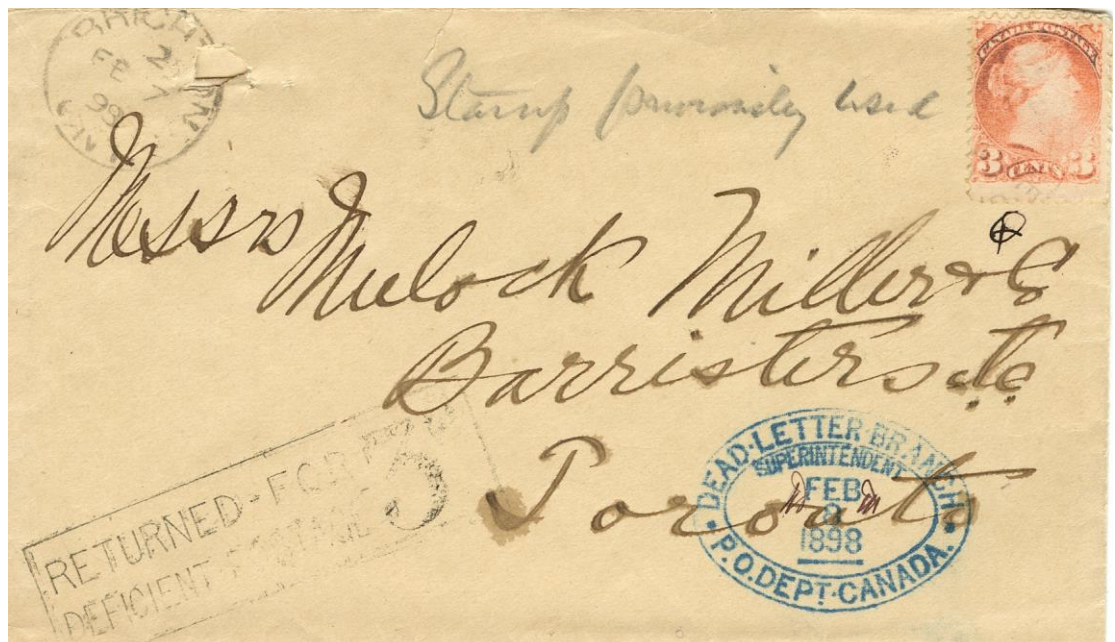 FE
Stamp previously used
CANADA POSTAGE
3 CENTS 3
Messrs
Mulock Miller & Co
Barristers &c
Toronto
RETURNED-FOR
DEFICIENT POSTAGE
3
DEAD·LETTER·BRANCH.
SUPERINTENDENT
FEB
1898
P.O.DEPT·CANADA.